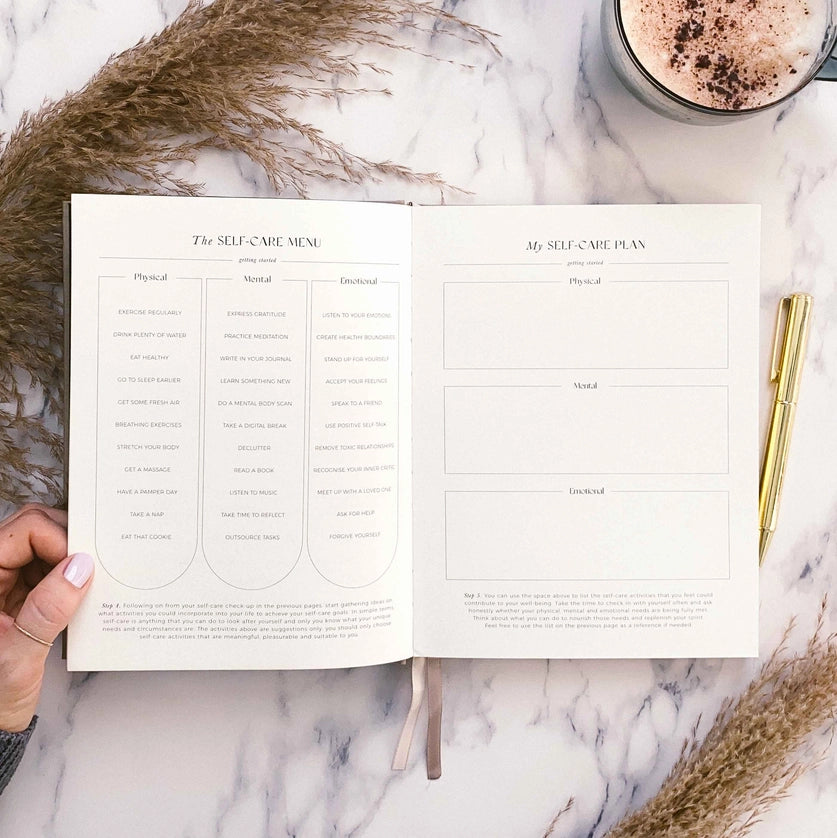 The SELF-CARE MENU
getting started
Physical
EXERCISE REGULARLY
DRINK PLENTY OF WATER
EAT HEALTHY
GO TO SLEEP EARLIER
GET SOME FRESH AIR
BREATHING EXERCISES
STRETCH YOUR BODY
GET A MASSAGE
HAVE A PAMPER DAY
TAKE A NAP
EAT THAT COOKIE
Mental
EXPRESS GRATITUDE
PRACTICE MEDITATION
WRITE IN YOUR JOURNAL
LEARN SOMETHING NEW
DO A MENTAL BODY SCAN
TAKE A DIGITAL BREAK
DECLUTTER
READ A BOOK
LISTEN TO MUSIC
TAKE TIME TO REFLECT
OUTSOURCE TASKS
Emotional
LISTEN TO YOUR EMOTIONS
CREATE HEALTHY BOUNDARIES
STAND UP FOR YOURSELF
ACCEPT YOUR FEELINGS
SPEAK TO A FRIEND
USE POSITIVE SELF TALK
REMOVE TOXIC RELATIONSHIPS
RECOGNISE YOUR INNER CRITIC
MEET UP WITH A LOVED ONE
ASK FOR HELP
FORGIVE YOURSELF
Step 4. Following on from your self-care check-up in the previous pages, start gathering ideas on
what activities you could incorporate into your life to achieve your self-care goals. In simple terms,
self-care is anything that you can do to look after yourself and only you know what your unique
needs and circumstances are. The activities above are suggestions only, you should only choose
self-care activities that are meaningful, pleasurable and suitable to you.
My SELF-CARE PLAN
getting started
Physical
Mental
Emotional
Step 5. You can use the space above to list the self-care activities that you feel could
contribute to your well-being. Take the time to check in with yourself often and ask
honestly whether your physical, mental and emotional needs are being fully met.
Think about what you can do to nourish those needs and replenish your spirit.
Feel free to use the list on the previous page as a reference if needed.